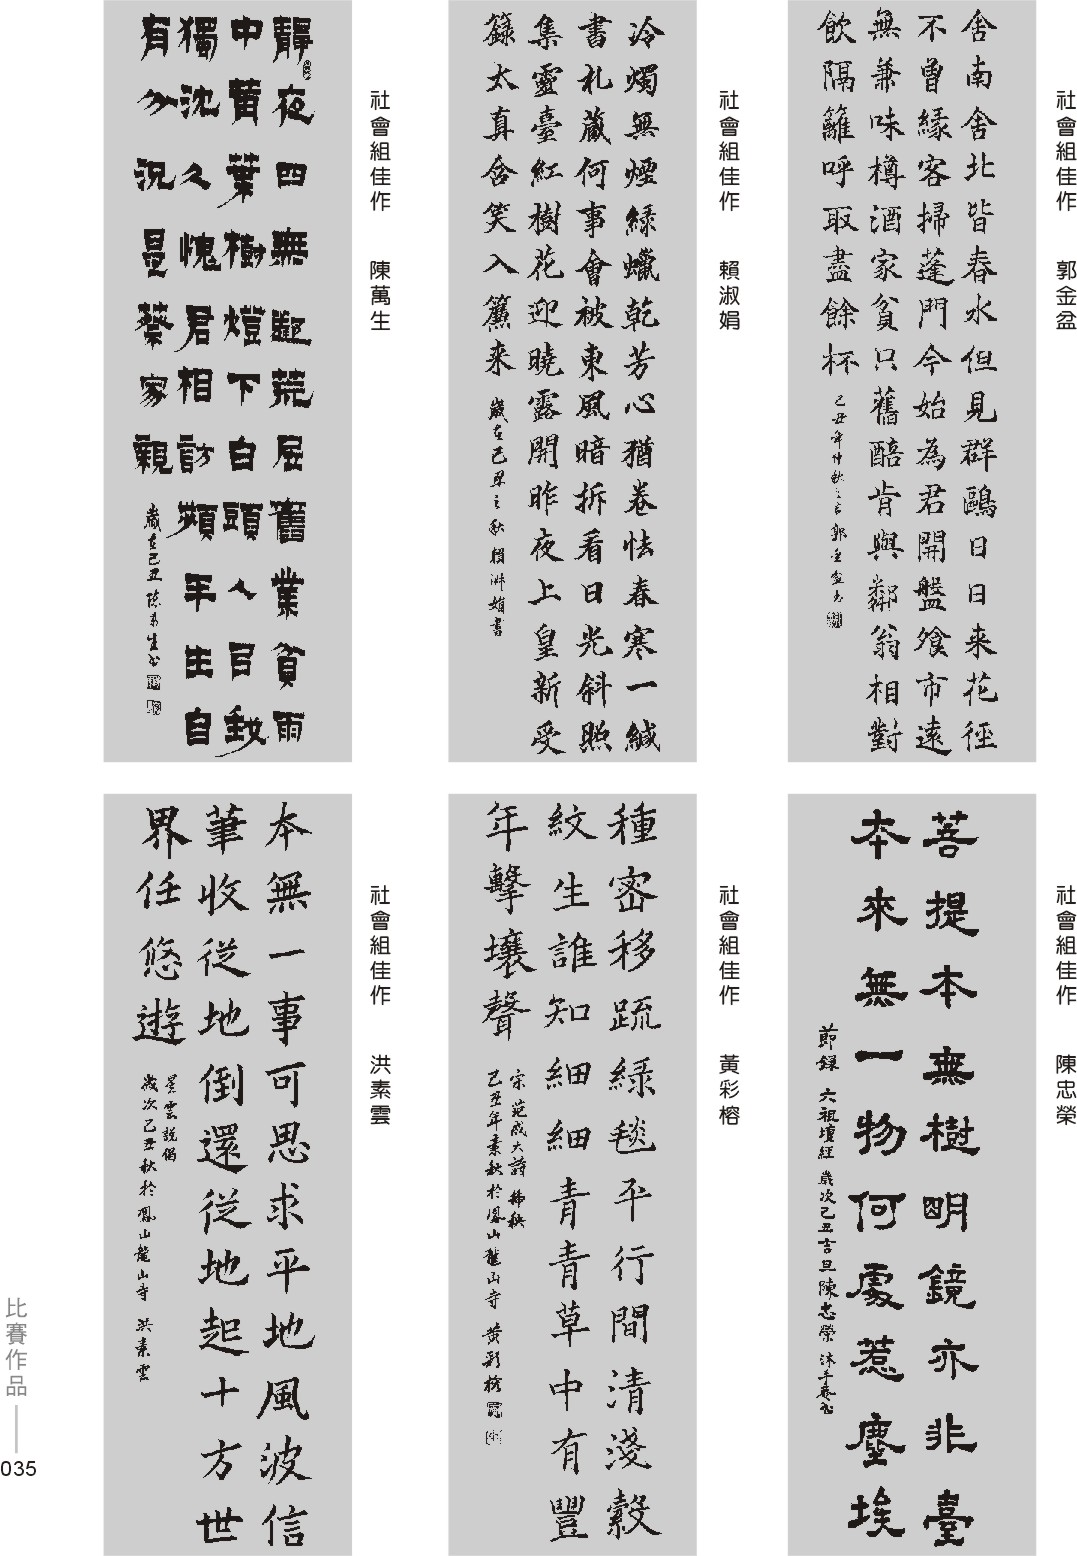 社會組佳作 郭金盆
舍南舍北皆春水但見群鷗日日来花徑
不曾緣客掃蓬門今始為君開盤飧市遠
無兼味樽酒家貧只舊醅肯與鄰翁相對
飲隔籬呼取盡餘杯
己丑年仲秋之吉 郭金盆書
社會組佳作 賴淑娟
冷燭無煙綠蠟乾芳心猶卷怯春寒一緘
書札藏何事會被東風暗拆看日光斜照
集靈臺紅樹花迎曉露開昨夜上皇新受
籙太真含笑入簾来
歲在己丑之秋 賴淑娟書
社會組佳作 陳萬生
靜夜四無鄰荒居舊業貧雨
中黃葉樹燈下白頭人以我
獨沈久愧君相訪頻平生自
有分況是蔡家親
歲在己丑 陳萬生書
社會組佳作 陳忠榮
菩提本無樹明鏡亦非臺
本來無一物何處惹塵埃
節錄 六祖壇經 歲次己丑吉旦陳忠榮 沐手敬書
社會組佳作 黃彩榕
種密移疏綠毯平行間清淺縠
紋生誰知細細青青草中有豐
年擊壤聲
宋 范成大詩 插秧
己丑年素秋於鳳山龍山寺 黃彩榕
社會組佳作 洪素雲
本無一事可思求平地風波信
筆收從地倒還從地起十方世
界任悠遊
星雲說偈
歲次己丑秋於鳳山龍山寺 洪素雲
比賽作品
035